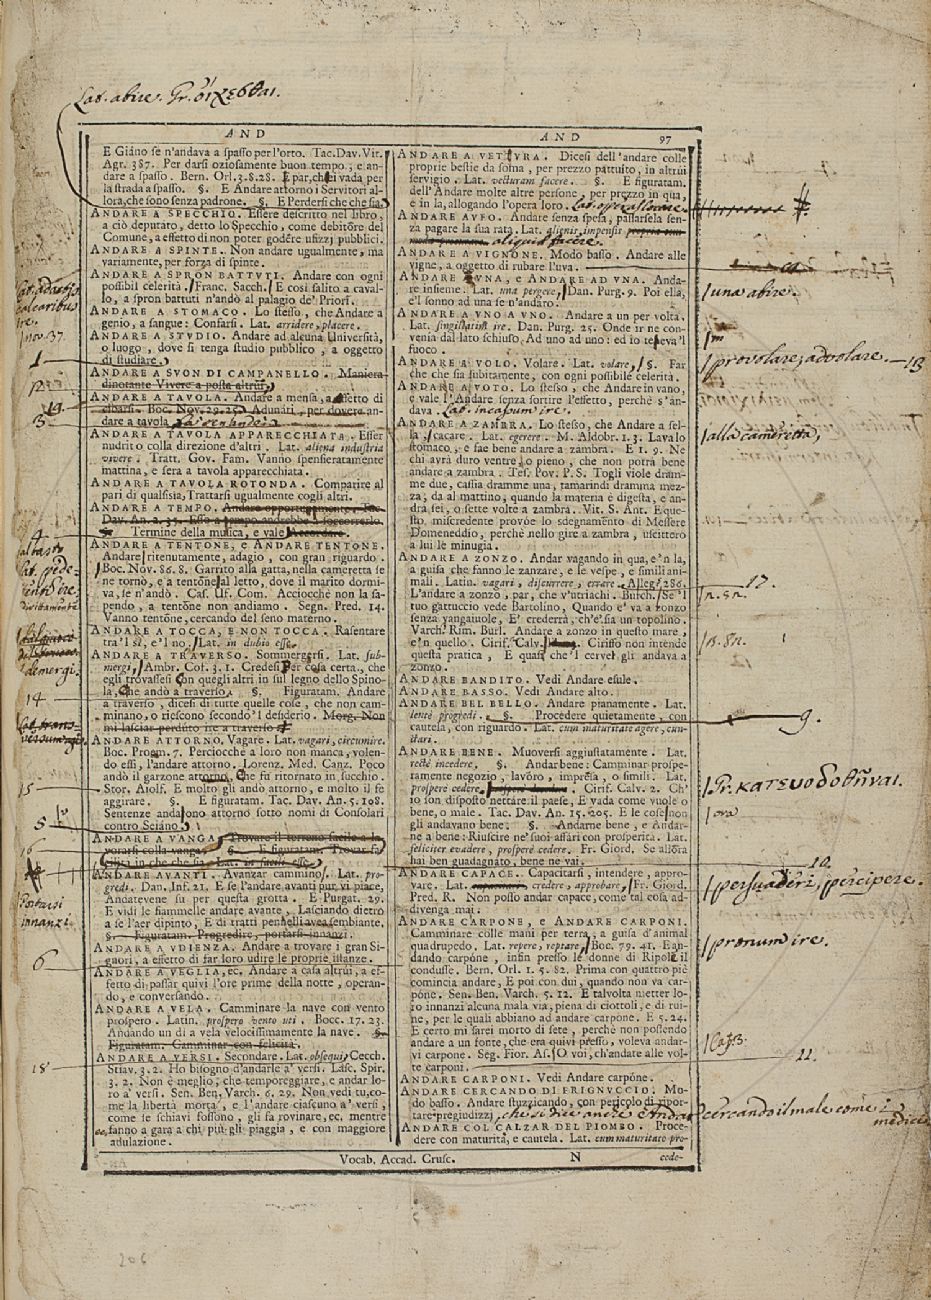 Lat. abire. Gr. οἴχεσθαι.
AND
AND 97
E Giáno se n'andava a spasso per l'orto. Tac. Dav. Vit.
Agr. 387. Per darsi oziosamente buon tempo; e an-
dare a spasso. Bern. Orl. 3. 8. 28. E par, ch'ei vada per
la strada a spasso. §. E Andare attorno i Servitori al-
lora, che sono senza padrone. §. E Perdersi che che sia.
ANDARE A SPECCHIO. Essere descritto nel libro,
a ciò deputato, detto lo Specchio, come debitóre del
Comune, a effetto di non poter godére ufizzj pubblici.
ANDARE A SPINTE. Non andare ugualmente, ma
variamente, per forza di spinte.
ANDARE A SPRON BATTUTI. Andare con ogni
possibil celerità. Franc. Sacch. E così salito a caval-
lo, a spron battuti n'andò al palagio de' Priori.
ANDARE A STOMACO. Lo stesso, che Andare a
genio, a sangue: Confarsi. Lat. arridere, placere.
ANDARE A STUDIO. Andare ad alcuna Università,
o luogo, dove si tenga studio pubblico, a oggetto
di studiare.
ANDARE A SVON DI CAMPANELLO. Maniera
dinotante Vivere a posta altrui.
ANDARE A TAVOLA. Andare a mensa, a effetto di
cibarsi. Boc. Nov. 29. 25. Adunati, per dovere an-
dare a tavola
ANDARE A TAVOLA APPARECCHIATA. Esser
nudrito colla direzione d'altri. Lat. aliena industria
vivere. Tratt. Gov. Fam. Vanno spensieratamente
mattina, e sera a tavola apparecchiata.
ANDARE A TAVOLA ROTONDA. Comparire al
pari di qualsisia, Trattarsi ugualmente cogli altri.
ANDARE A TEMPO. Andare opportunamente. Tac.
Dav. An. 2. 35. Esso a tempo andrebbe a soccorrerlo.
§. Termine della musica, e vale Accordare.
ANDARE A TENTONE, e ANDARE TENTONE.
Andare ritenutamente, adagio, con gran riguardo.
Boc. Nov. 86. 8. Garrito alla gatta, nella cameretta se
ne tornò, e a tentóne al letto, dove il marito dormi-
va, se n'andò. Cas. Uf. Com. Acciocchè non la sa-
pendo, a tentóne non andiamo. Segn. Pred. 14.
Vanno tentóne, cercando del seno materno.
ANDARE A TOCCA, E NON TOCCA. Rasentare
tra 'l sì, e 'l no. Lat. in dubio esse.
ANDARE A TRAVERSO. Sommergersi. Lat. sub-
mergi. Ambr. Cof. 3. 1. Credesi per cosa certa, che
egli trovassesi con quegli altri in sul legno dello Spino-
la, che andò a traverso. §. Figuratam. Andare
a traverso, dicesi di tutte quelle cose, che non cam-
minano, o riescono secondo 'l desiderio. Morg. Non
mi lasciar perduto ne a traverso
ANDARE ATTORNO. Vagare. Lat. vagari, circumire.
Boc. Proem. 7. Perciocchè a loro non manca, volen-
do essi, l'andare attorno. Lorenz. Med. Canz. Poco
andò il garzone attorno, Che fu ritornato in succhio.
Stor. Aiolf. E molto gli andò attorno, e molto il fe
aggirare. §. E figuratam. Tac. Dav. An. 5. 108.
Sentenze andaron attorno sotto nomi di Consolari
contro Sciáno.
ANDARE A VANGA. Trovare il terreno facile a la-
vorarsi colla vanga. §. E figuratam. Trovar fa-
cilità in che che sia. Lat. in facili esse.
ANDARE AVANTI. Avanzar cammino. Lat. pro-
gredi. Dan. Inf. 21. E se l'andare avanti pur vi piace,
Andatevene su per questa grotta. E Purgat. 29.
E vidi le fiammelle andare avante, Lasciando dietro
a se l'aer dipinto, E di tratti pennelli avea sembiante.
§. Figuratam. Progredire, portarsi innanzi.
ANDARE A UDIENZA. Andare a trovare i gran Si-
gnori, a effetto di far loro udire le proprie istanze.
ANDARE A VEGLIA, ec. Andare a casa altrúi, a ef-
fetto di passar quivi l'ore prime della notte, operan-
do, e conversando.
ANDARE A VELA. Camminare la nave con vento
prospero. Latin. prospero vento uti. Bocc. 17. 23.
Andando un dì a vela velocissimamente la nave. §.
Figuratam. Camminar con felicità.
ANDARE A VERSI. Secondare. Lat. obsequi, Cecch.
Stiav. 3. 2. Ho bisogno d'andarle a' versi. Lasc. Spir.
3. 2. Non è meglio, che temporeggiare, e andar lo-
ro a' versi. Sen. Ben. Varch. 6. 29. Non vedi tu, co-
me la libertà morta, e l'andare ciascuno a' versi,
come se schiavi fossono, gli fa rovinare, ec. mentre
fanno a gara a chi più gli piaggia, e con maggiore
adulazione.
ANDARE A VETTURA. Dicesi dell'andare colle
proprie bestie da soma, per prezzo pattuito, in altrúi
servigio. Lat. vecturam facere. §. E figuratam.
dell'Andare molte altre persone, per prezzo in qua,
e in la, allogando l'opera loro. Lat. operas locare.
ANDARE AUFO. Andare senza spesa, passarsela sen-
za pagare la sua rata. Lat. alienis impensis
aliquid facere.
ANDARE A VIGNONE. Modo basso. Andare alle
vigne, a oggetto di rubare l'uva.
ANDARE A UNA, E ANDARE AD UNA. Anda-
re insieme. Lat. una pergere. Dan. Purg. 9. Poi ella,
e 'l sonno ad una se n'andaro.
ANDARE A UNO A UNO. Andare a un per volta.
Lat. singillatim ire. Dan. Purg. 25. Onde ir ne con-
venia dal lato schiuso, Ad uno ad uno: ed io temeva 'l
fuoco.
ANDARE A VOLO. Volare. Lat. volare, §. Far
che che sia subitamente, con ogni possibile celerità.
ANDARE A VOTO. Lo stesso, che Andare in vano,
e vale l'Andare senza sortire l'effetto, perchè s'an-
dava. Lat. incassum ire.
ANDARE A ZAMBRA. Lo stesso, che Andare a sel-
la, cacare. Lat. egerere. M. Aldobr. 1. 3. Lava lo
stomaco, e fae bene andare a zambra. E 1. 9. Ne
chi avrà duro ventre, o pieno, che non potrà bene
andare a zambra. Tes. Pov. P. S. Togli viole dram-
me due, cassia dramme una, tamarindi dramma mez-
za; da al mattino, quando la materia è digesta, e an-
drà sei, o sette volte a zambra. Vit. S. Ant. E que-
sto, miscredente provóe lo sdegnaménto di Messere
Domeneddio, perchè nello gire a zambra, uscittero
a lui le minugia.
ANDARE A ZONZO. Andar vagando in qua, e 'n la,
a guisa che fanno le zanzare, e le vespe, e simili ani-
mali. Latin. vagari, discurrere, errare. Alleg. 286.
L'andare a zonzo, par, che v'utriachi. Burch. Se 'l
tuo gattuccio vede Bartolino, Quando e' va a zonzo
senza yangaiuole, E' crederrà, ch'e' sia un topolino.
Varch. Rim. Burl. Andare a zonzo in questo mare,
e 'n quello. Cirif. Calv. Ciriffo non intende
questa pratica, E quasi che 'l cervel gli andava a
zonzo.
ANDARE BANDITO. Vedi Andare esule.
ANDARE BASSO. Vedi Andare alto.
ANDARE BEL BELLO. Andare pianamente. Lat.
lentè progredi. §. Procedere quietamente, con
cautela, con riguardo. Lat. cum maturitate agere, cun-
ctari.
ANDARE BENE. Muoversi aggiustatamente. Lat.
rectè incedere, §. Andar bene: Camminar prospe-
ramente negozio, lavóro, impresa, o simili. Lat.
prosperè cedere. Cirif. Calv. 2. Ch'
io son disposto nettare il paese, E vada come vuole o
bene, o male. Tac. Dav. An. 15. 205. E le cose non
gli andavano bene. §. Andarne bene, e Andar-
ne a bene: Riuscire ne' suoi affari con prosperità. Lat.
feliciter evadere, prosperè cedere. Fr. Giord. Se allóra
hai ben guadagnato, bene ne vai.
ANDARE CAPACE. Capacitarsi, intendere, appro-
vare. Lat. credere, approbare. Fr. Giord.
Pred. R. Non posso andar capace, come tal cosa ad-
divenga mai.
ANDARE CARPONE, e ANDARE CARPONI.
Camminare colle mani per terra, a guisa d'animal
quadrupedo. Lat. repere, reptare. Boc. 79. 41. E an-
dando carpóne, infin presso le donne di Ripole il
condusse. Bern. Orl. 1. 5. 82. Prima con quattro piè
comincia andare, E poi con dui, quando non va car-
póne. Sen. Ben. Varch. 5. 12. E talvolta metter lo-
ro innanzi alcuna mala via, piena di ciottoli, e di rui-
ne, per le quali abbiano ad andare carpone. E 5. 24.
E certo mi sarei morto di sete, perchè non possendo
andare a un fonte, che era quivi presso, voleva andar-
vi carpone. Seg. Fior. As. O voi, ch'andate alle vol-
te carponi.
ANDARE CARPONI. Vedi Andare carpóne.
ANDARE CERCANDO DI FRIGNUCCIO. Mo-
do basso. Andare stuzzicando, con pericolo di ripor-
tare pregiudizzj, che si dice anche Andar cercando il male come i medici
ANDARE COL CALZAR DEL PIOMBO. Proce-
dere con maturità, e cautela. Lat. cum maturitate pro-
Vocab. Accad. Crusc. N cede-
calcaribus
ire.
nov. 37.
1
3
4
demergi.
14
15
5
16
Portarsi
innanzi.
6
18
una abire.
provolare, advolare. 13
alla cameretta,
17.
9.
Gr. κατευοδοθῆναι.
ora
10.
persuaderi, percipere.
pronum ire.
Cap. 3.
11.
206